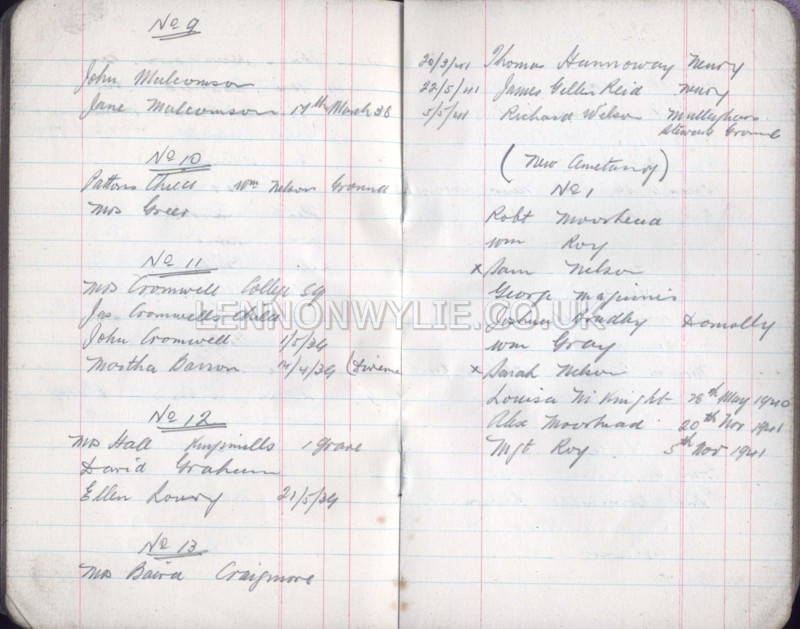 No 9
John Malcomson
Jane Malcomson 17th March 38
No 10
Pattons Child Wm Nelson Ground
Mrs Greer
No 11
Mrs Cromwell College Sq
Jas Cromwells Child
John Cromwell 1/5/39
Martha Barron 14/4/39
No 12
Mrs Hall Kingsmills 1 grave
David Graham
Ellen Lowry 21/5/39
No 13
Mrs Baird Craigmore
Thomas Hannoway Newry
22/5/41 James Geller Reid Newry
5/5/41 Richard Wilson
Stewart Ground
(New Cemetary)
No 1
Robt Moorhead
Wm Roy
x Sam Nelson
George Maginnis
Joshua Bradley Damolly
Wm Gray
x Sarah Nelson
Louisa McKnight 28th May 1940
Alex Moorhead 20th Nov 1941
Mgt Roy 5th Nov 1941
LENNONWYLIE.CO.UK